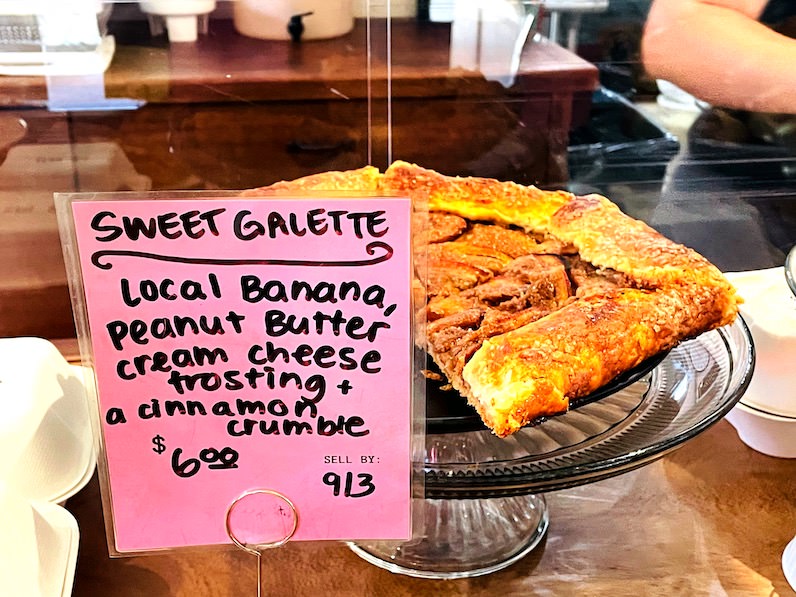 SWEET GALETTE
Local Banana,
Peanut Butter
cream cheese
frosting +
a cinnamon
crumble
$6.00
SELL BY:
9/3